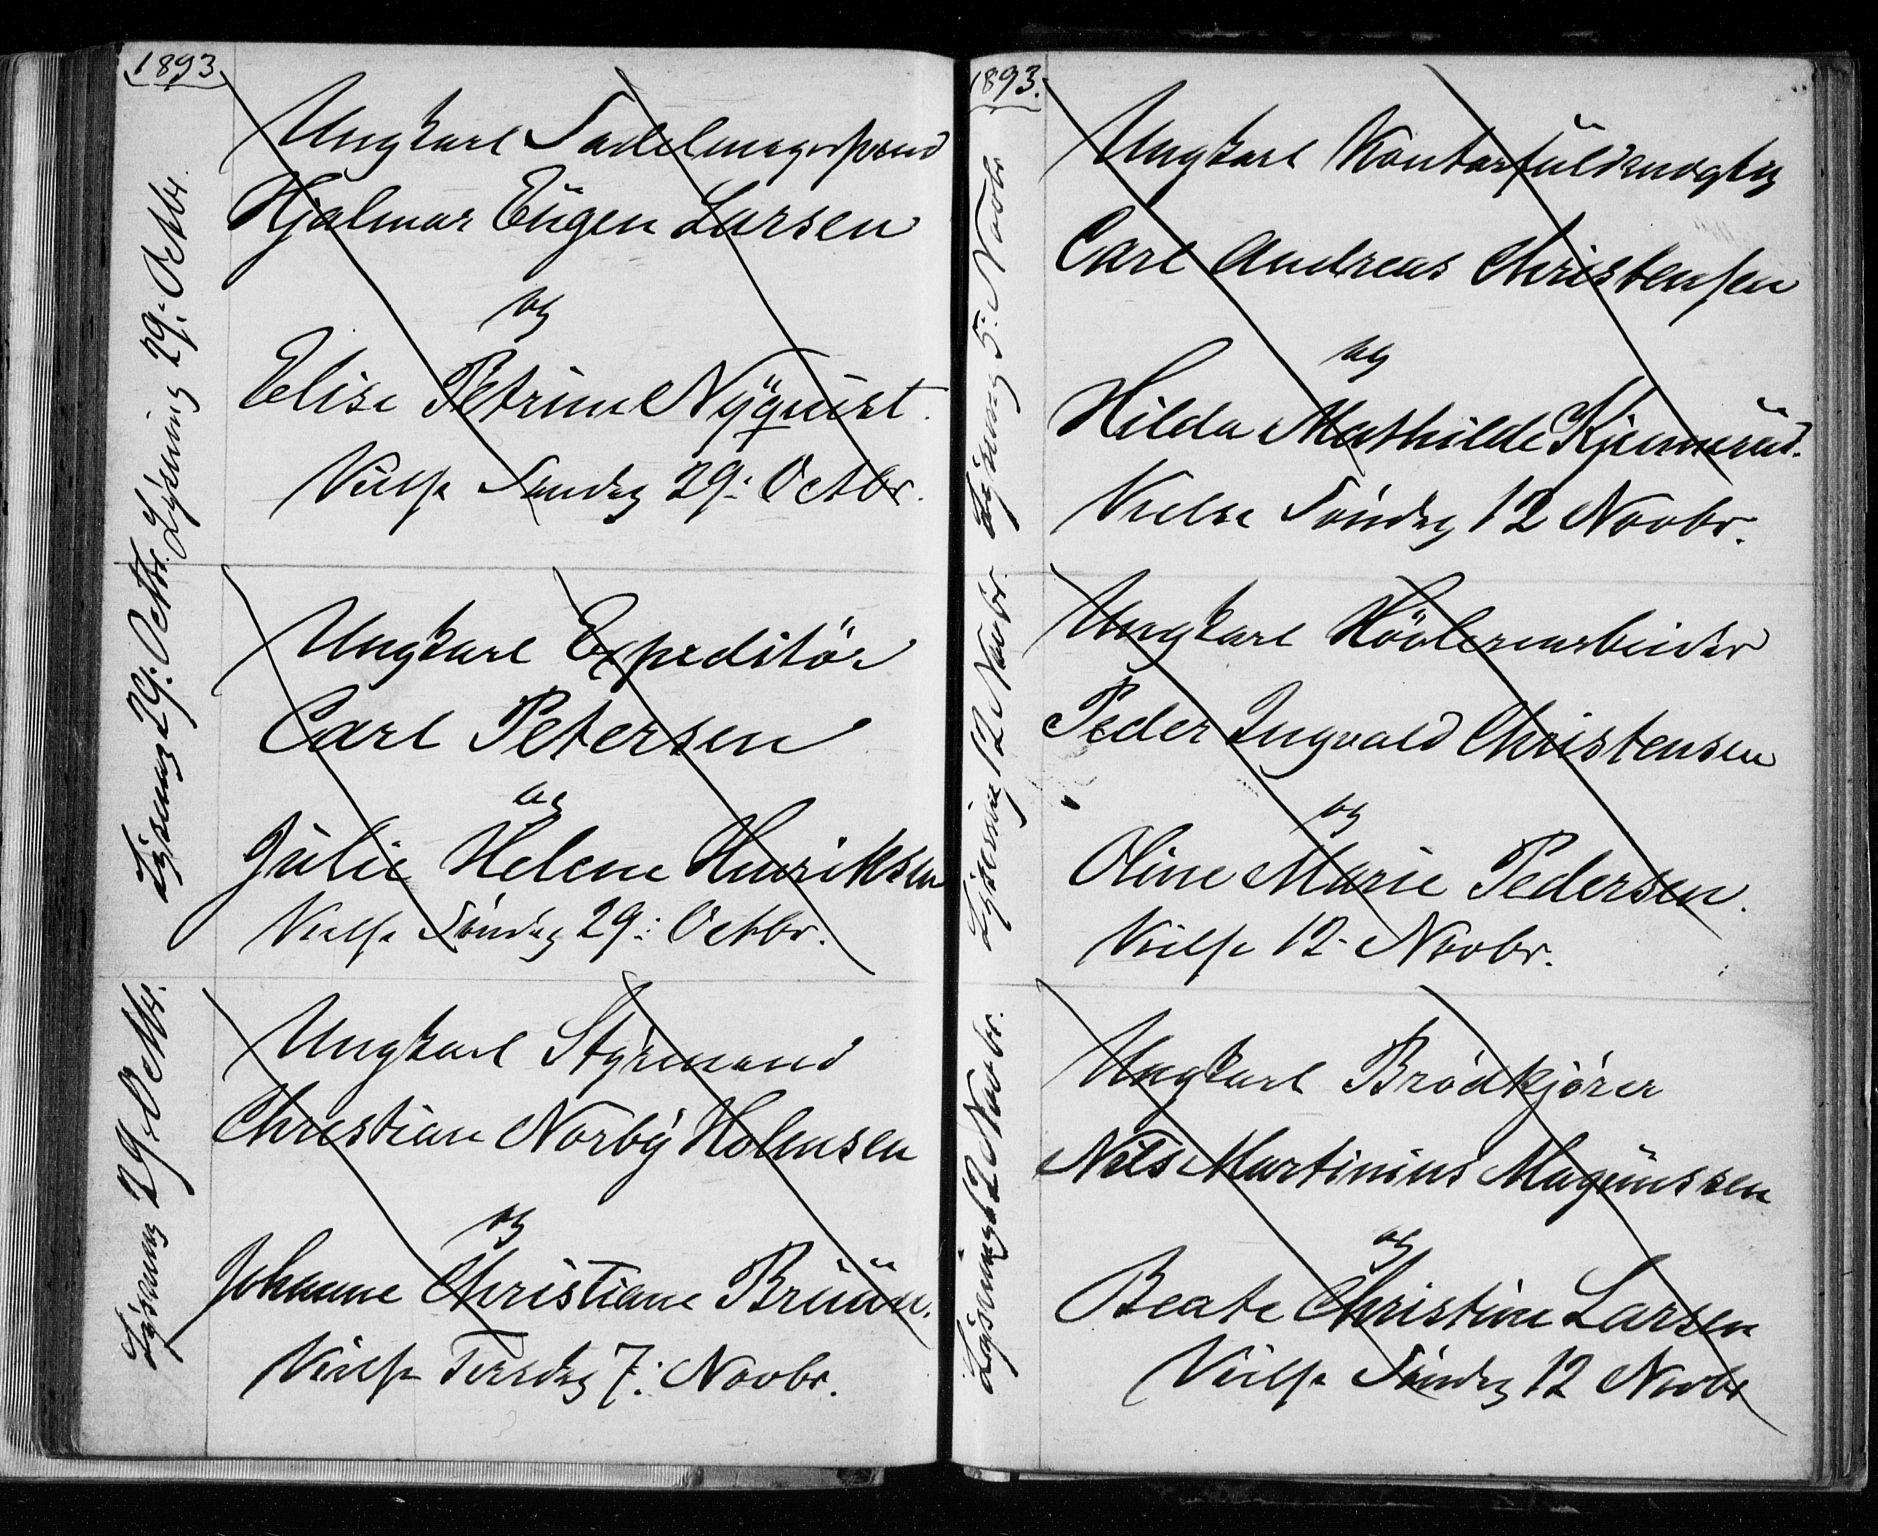 1893
Lysning 29: Octbr.
Ungkarl Sadelmagersvend
Hjalmar Eugen Larsen
og
Elise Petrine Nyquist.
Vielse Søndag 29: Octbr.
Lysning 29: Octbr.
Ungkarl Expeditör
Carl Petersen
og
Julie Helene Henriksen
Vielse Søndag 29: Octbr.
Lysning 29: Octbr.
Ungkarl Styrmand
Christian Norby Holmsen
og
Johanne Christiane Bruun.
Vielse Tirsdag 7: Novbr.
1893.
Lysning 5: Novbr.
Ungkarl Kontorfuldmægtig
Carl Andreas Christensen
og
Hilda Mathilde
Vielse Søndag 12 Novbr.
Lysning 12 Novbr.
Ungkarl Hövleriarbeider
Peder Ingvald Christensen
og
Oline Marie Pedersen.
Vielse 12- Novbr.
Lysning 12 Novbr.
Ungkarl Brödkjörer
Nils Martinius Magnussen
og
Beate Christine Larsen
Vielse Søndag 12 Novbr